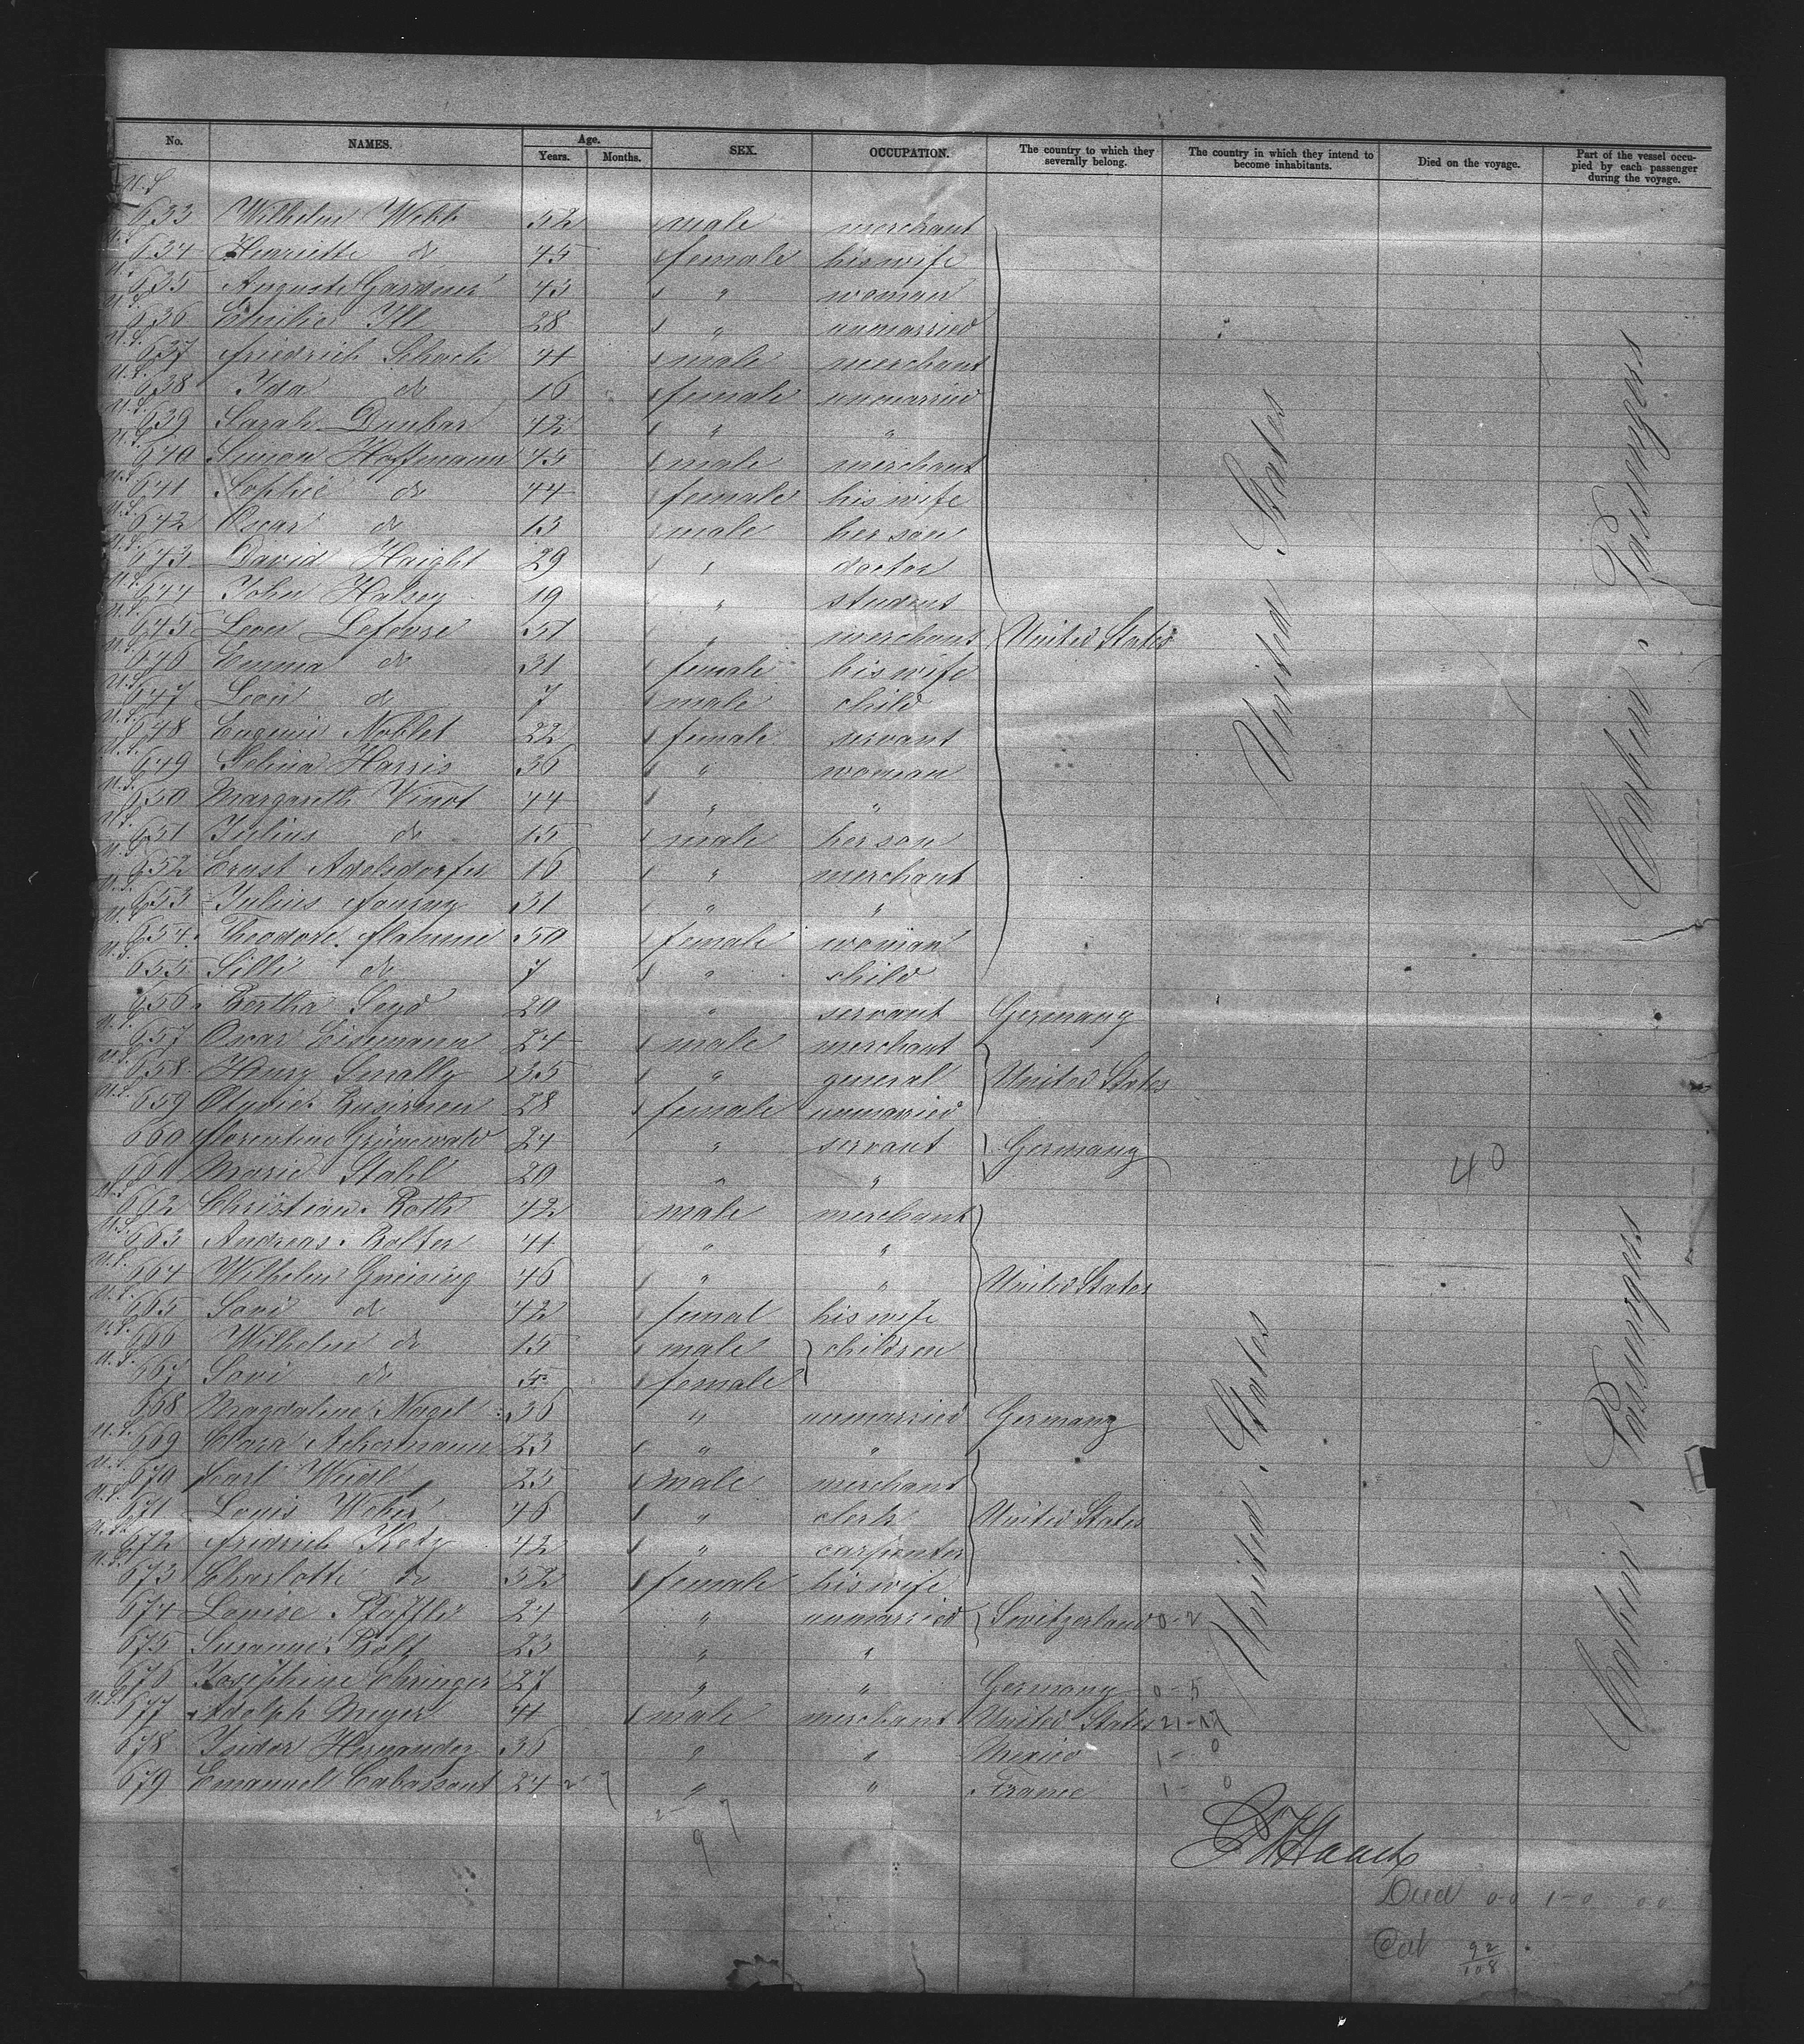 No. NAMES. Age. Years. Months. SEX. OCCUPATION. The country to which they severally belong. The country in which they intend to become inhabitants. Died on the voyage. Part of the vessel occupied by each passenger during the voyage.
U.S. 633 Wilhelm 52 male merchant
U.S. 634 Henriette do 45 female his wife
U.S. 635 Auguste Gardner 43 " woman
U.S. 636 Emilie Ill 28 " unmarried
U.S. 637 Friedrich Schack 41 male merchant
U.S. 638 Ida do 16 female unmarried
U.S. 639 Sarah Dunbar 42 " "
U.S. 640 Simon Hoffmann 45 male merchant
U.S. 641 Sophie do 44 female his wife
U.S. 642 Oscar do 13 male her son
U.S. 643 David Haight 29 " doctor
U.S. 644 John Halsey 19 " student
U.S. 645 Leon Lefevre 51 " merchant United States
U.S. 646 Emma do 31 female his wife
U.S. 647 Leon do 7 male child
U.S. 648 Eugenie Noblet 22 female servant
U.S. 649 Selina Harris 36 " woman
U.S. 650 Margareth Vinot 44 " "
U.S. 651 Julius do 15 male her son
U.S. 652 Ernst Adelsdorfer 16 " merchant
U.S. 653 Julius 31 " "
U.S. 654 Theodore 50 female woman
U.S. 655 Silli do 7 " child
656 Bertha Seyd 20 " servant Germany
U.S. 657 Oscar Eisemann 24 male merchant
U.S. 658 Henry 55 " general United States
U.S. 659 28 female unmarried
660 Florentine Grünewald 24 " servant Germany
661 Marie Stahl 20 " "
U.S. 662 Christian Roth 42 male merchant
U.S. 663 Andreas Rolfter 41 " "
U.S. 664 Wilhelm Gneising 46 " " United States
U.S. 665 do 42 femal his wife
U.S. 666 Wilhelm do 15 male children
U.S. 667 do 5 female
668 Magdalene Nagel 36 " unmarried Germany
U.S. 669 Clara Ackermann 23 " "
U.S. 670 Carl 25 male merchant
U.S. 671 Louis Weber 46 " clerk United States
U.S. 672 Fridrich 42 " carpenter
U.S. 673 Charlotte do 52 female his wife
674 Louise 24 " unmarried Switzerland 0-2
675 Susanne Rolf 23 " "
676 Josephine Ehringer 27 " " Germany 0-5
U.S. 677 Adolph Meyer 41 male merchant United States 21-17
678 Isidor Hernandez 36 " " Mexico 1-0
679 Emanuel Cabassout 24 " " France 1-0
United States
United States
Cabin Passengers
Cabin Passengers
40
2-7
9
Died 0-0 1-0 00
92
108